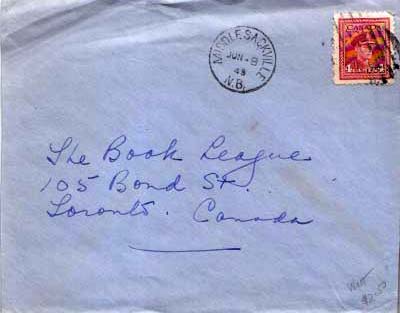 MIDDLE SACKVILLE
JUN - 8
48
N.B.
CANADA
4 4
The Book League
105 Bond St.
Toronto. Canada